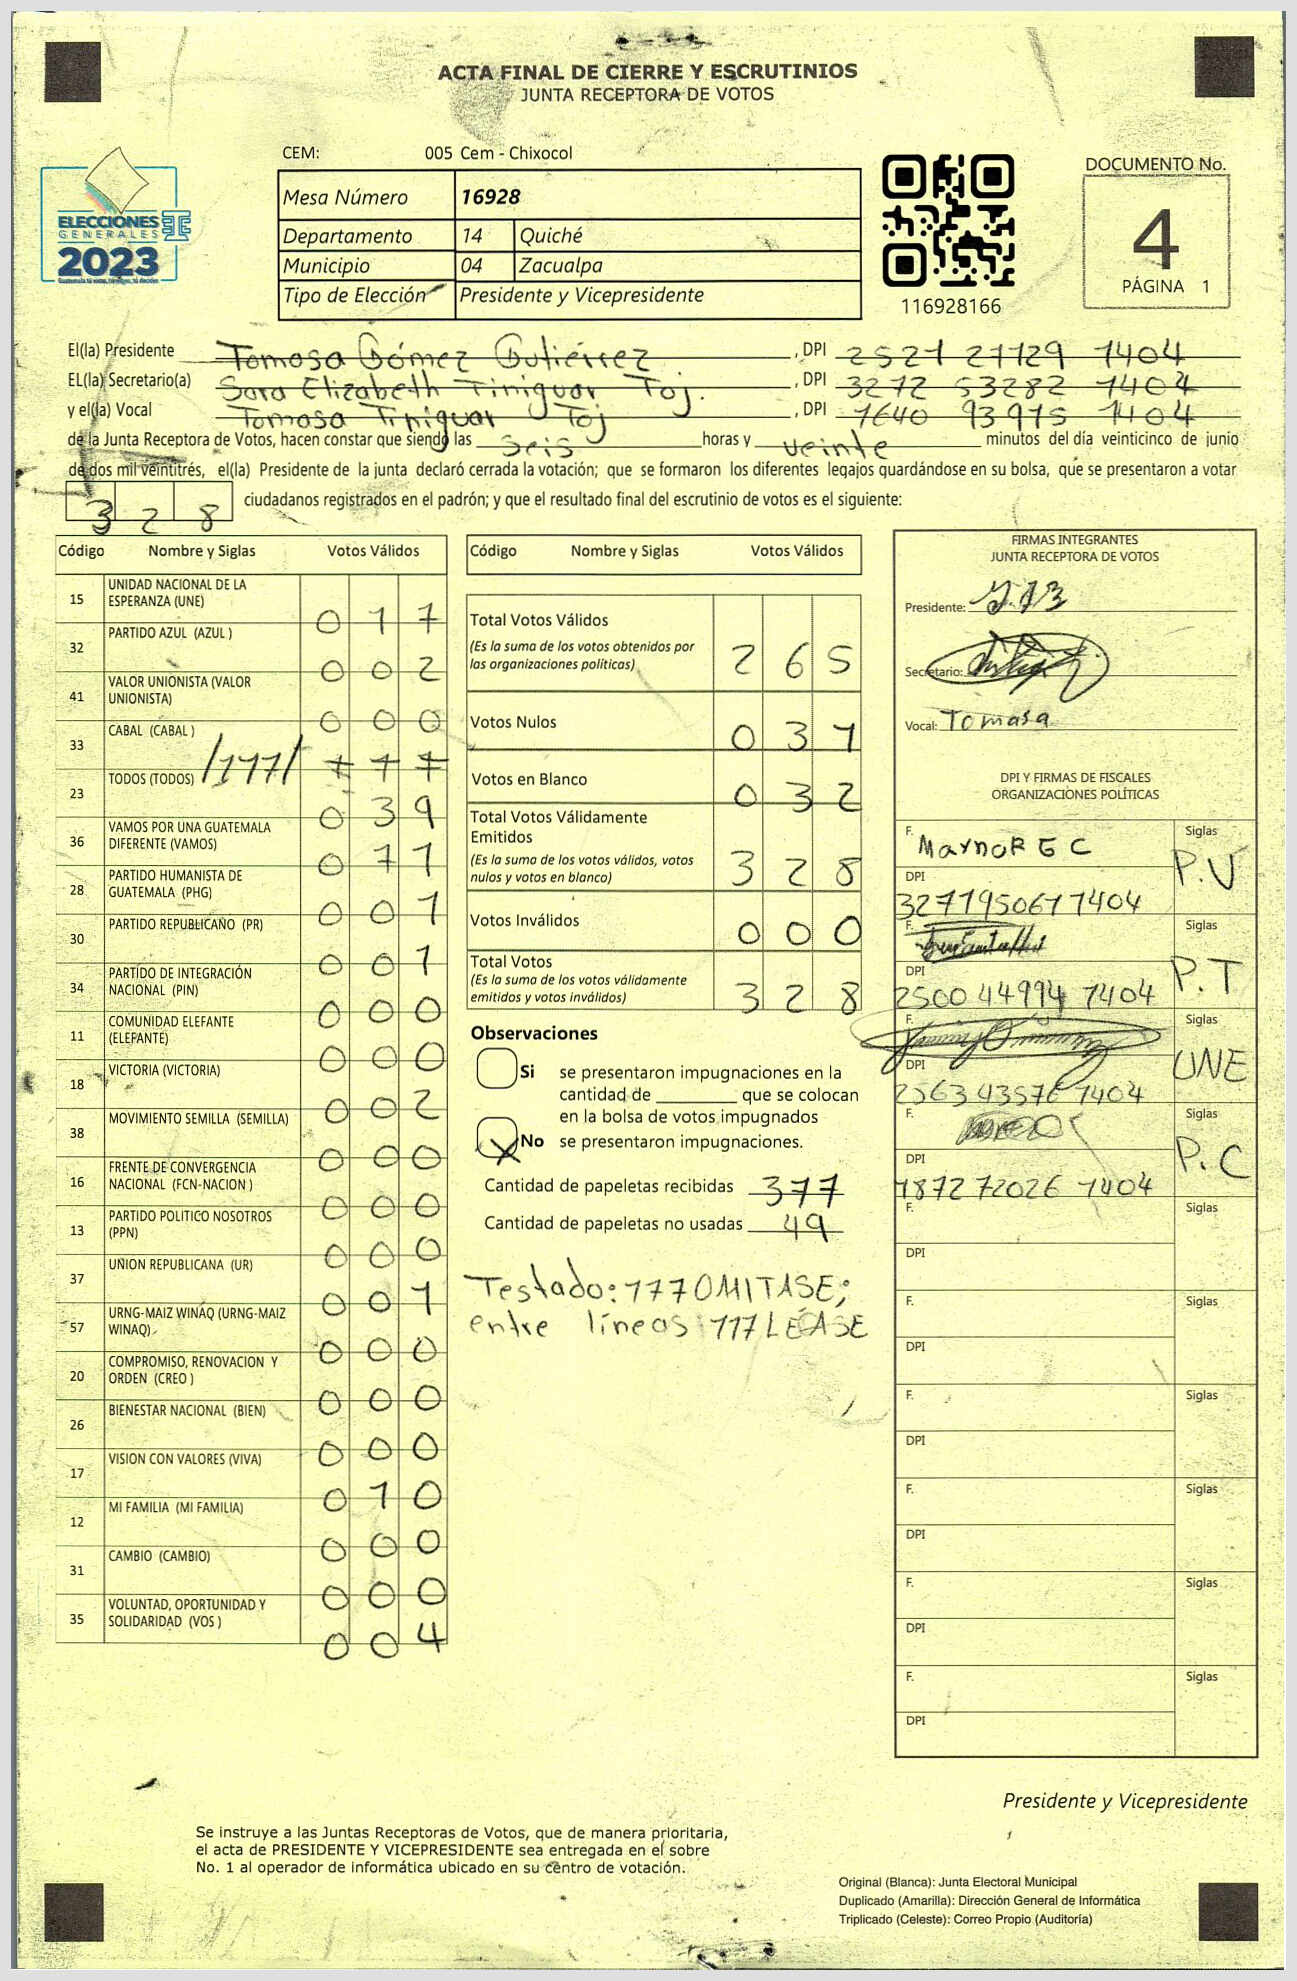 ACTA FINAL DE CIERRE Y ESCRUTINIOS
JUNTA RECEPTORA DE VOTOS
CEM: 005 Cem - Chixocol
ELECCIONES
GENERALES
2023
Mesa Número 16928
Departamento 14 Quiché
Municipio 04 Zacualpa
Tipo de Elección Presidente y Vicepresidente
116928166
DOCUMENTO No.
4
PÁGINA 1
El(la) Presidente Tomosa Gómez Gutiérrez, DPI 2521 21129 1404
EL(la) Secretario(a) Sara Elizabeth Tiniguar Toj., DPI 3272 53282 1404
y el(la) Vocal Tomosa Tiniguar Toj, DPI 1640 93915 1404
de la Junta Receptora de Votos, hacen constar que siendo las seis horas y veinte minutos del día veinticinco de junio
de dos mil veintitrés, el(la) Presidente de la junta declaró cerrada la votación; que se formaron los diferentes legajos guardándose en su bolsa, que se presentaron a votar
328 ciudadanos registrados en el padrón; y que el resultado final del escrutinio de votos es el siguiente:
Código Nombre y Siglas Votos Válidos
15 UNIDAD NACIONAL DE LA ESPERANZA (UNE) 017
32 PARTIDO AZUL (AZUL ) 002
41 VALOR UNIONISTA (VALOR UNIONISTA) 000
33 CABAL (CABAL ) /117/ 777
23 TODOS (TODOS) 039
36 VAMOS POR UNA GUATEMALA DIFERENTE (VAMOS) 071
28 PARTIDO HUMANISTA DE GUATEMALA (PHG) 001
30 PARTIDO REPUBLICANO (PR) 001
34 PARTIDO DE INTEGRACIÓN NACIONAL (PIN) 000
11 COMUNIDAD ELEFANTE (ELEFANTE) 000
18 VICTORIA (VICTORIA) 002
38 MOVIMIENTO SEMILLA (SEMILLA) 000
16 FRENTE DE CONVERGENCIA NACIONAL (FCN-NACION ) 000
13 PARTIDO POLITICO NOSOTROS (PPN) 000
37 UNION REPUBLICANA (UR) 001
57 URNG-MAIZ WINAQ (URNG-MAIZ WINAQ) 000
20 COMPROMISO, RENOVACION Y ORDEN (CREO ) 000
26 BIENESTAR NACIONAL (BIEN) 000
17 VISION CON VALORES (VIVA) 010
12 MI FAMILIA (MI FAMILIA) 000
31 CAMBIO (CAMBIO) 000
35 VOLUNTAD, OPORTUNIDAD Y SOLIDARIDAD (VOS ) 004
Código Nombre y Siglas Votos Válidos
Total Votos Válidos 265
(Es la suma de los votos obtenidos por
las organizaciones políticas)
Votos Nulos 031
Votos en Blanco 032
Total Votos Válidamente
Emitidos 328
(Es la suma de los votos válidos, votos
nulos y votos en blanco)
Votos Inválidos 000
Total Votos 328
(Es la suma de los votos válidamente
emitidos y votos inválidos)
Observaciones
Si se presentaron impugnaciones en la
cantidad de ________ que se colocan
en la bolsa de votos impugnados
X No se presentaron impugnaciones.
Cantidad de papeletas recibidas 377
Cantidad de papeletas no usadas 49
Testado: 177 OMITASE;
entre líneas 117 LEASE
FIRMAS INTEGRANTES
JUNTA RECEPTORA DE VOTOS
Presidente:
Secretario:
Vocal: Tomasa
DPI Y FIRMAS DE FISCALES
ORGANIZACIONES POLÍTICAS
F. Maynor G C Siglas P.V
DPI 3271195061 1404
F. Siglas P.T
DPI 2500 44994 1404
F. Siglas UNE
DPI 2563 43576 1404
F. Siglas P.C
DPI 1872 72026 1404
F. Siglas
DPI
F. Siglas
DPI
F. Siglas
DPI
F. Siglas
DPI
F. Siglas
DPI
F. Siglas
DPI
Presidente y Vicepresidente
Se instruye a las Juntas Receptoras de Votos, que de manera prioritaria,
el acta de PRESIDENTE Y VICEPRESIDENTE sea entregada en el sobre
No. 1 al operador de informática ubicado en su centro de votación.
Original (Blanca): Junta Electoral Municipal
Duplicado (Amarilla): Dirección General de Informática
Triplicado (Celeste): Correo Propio (Auditoría)